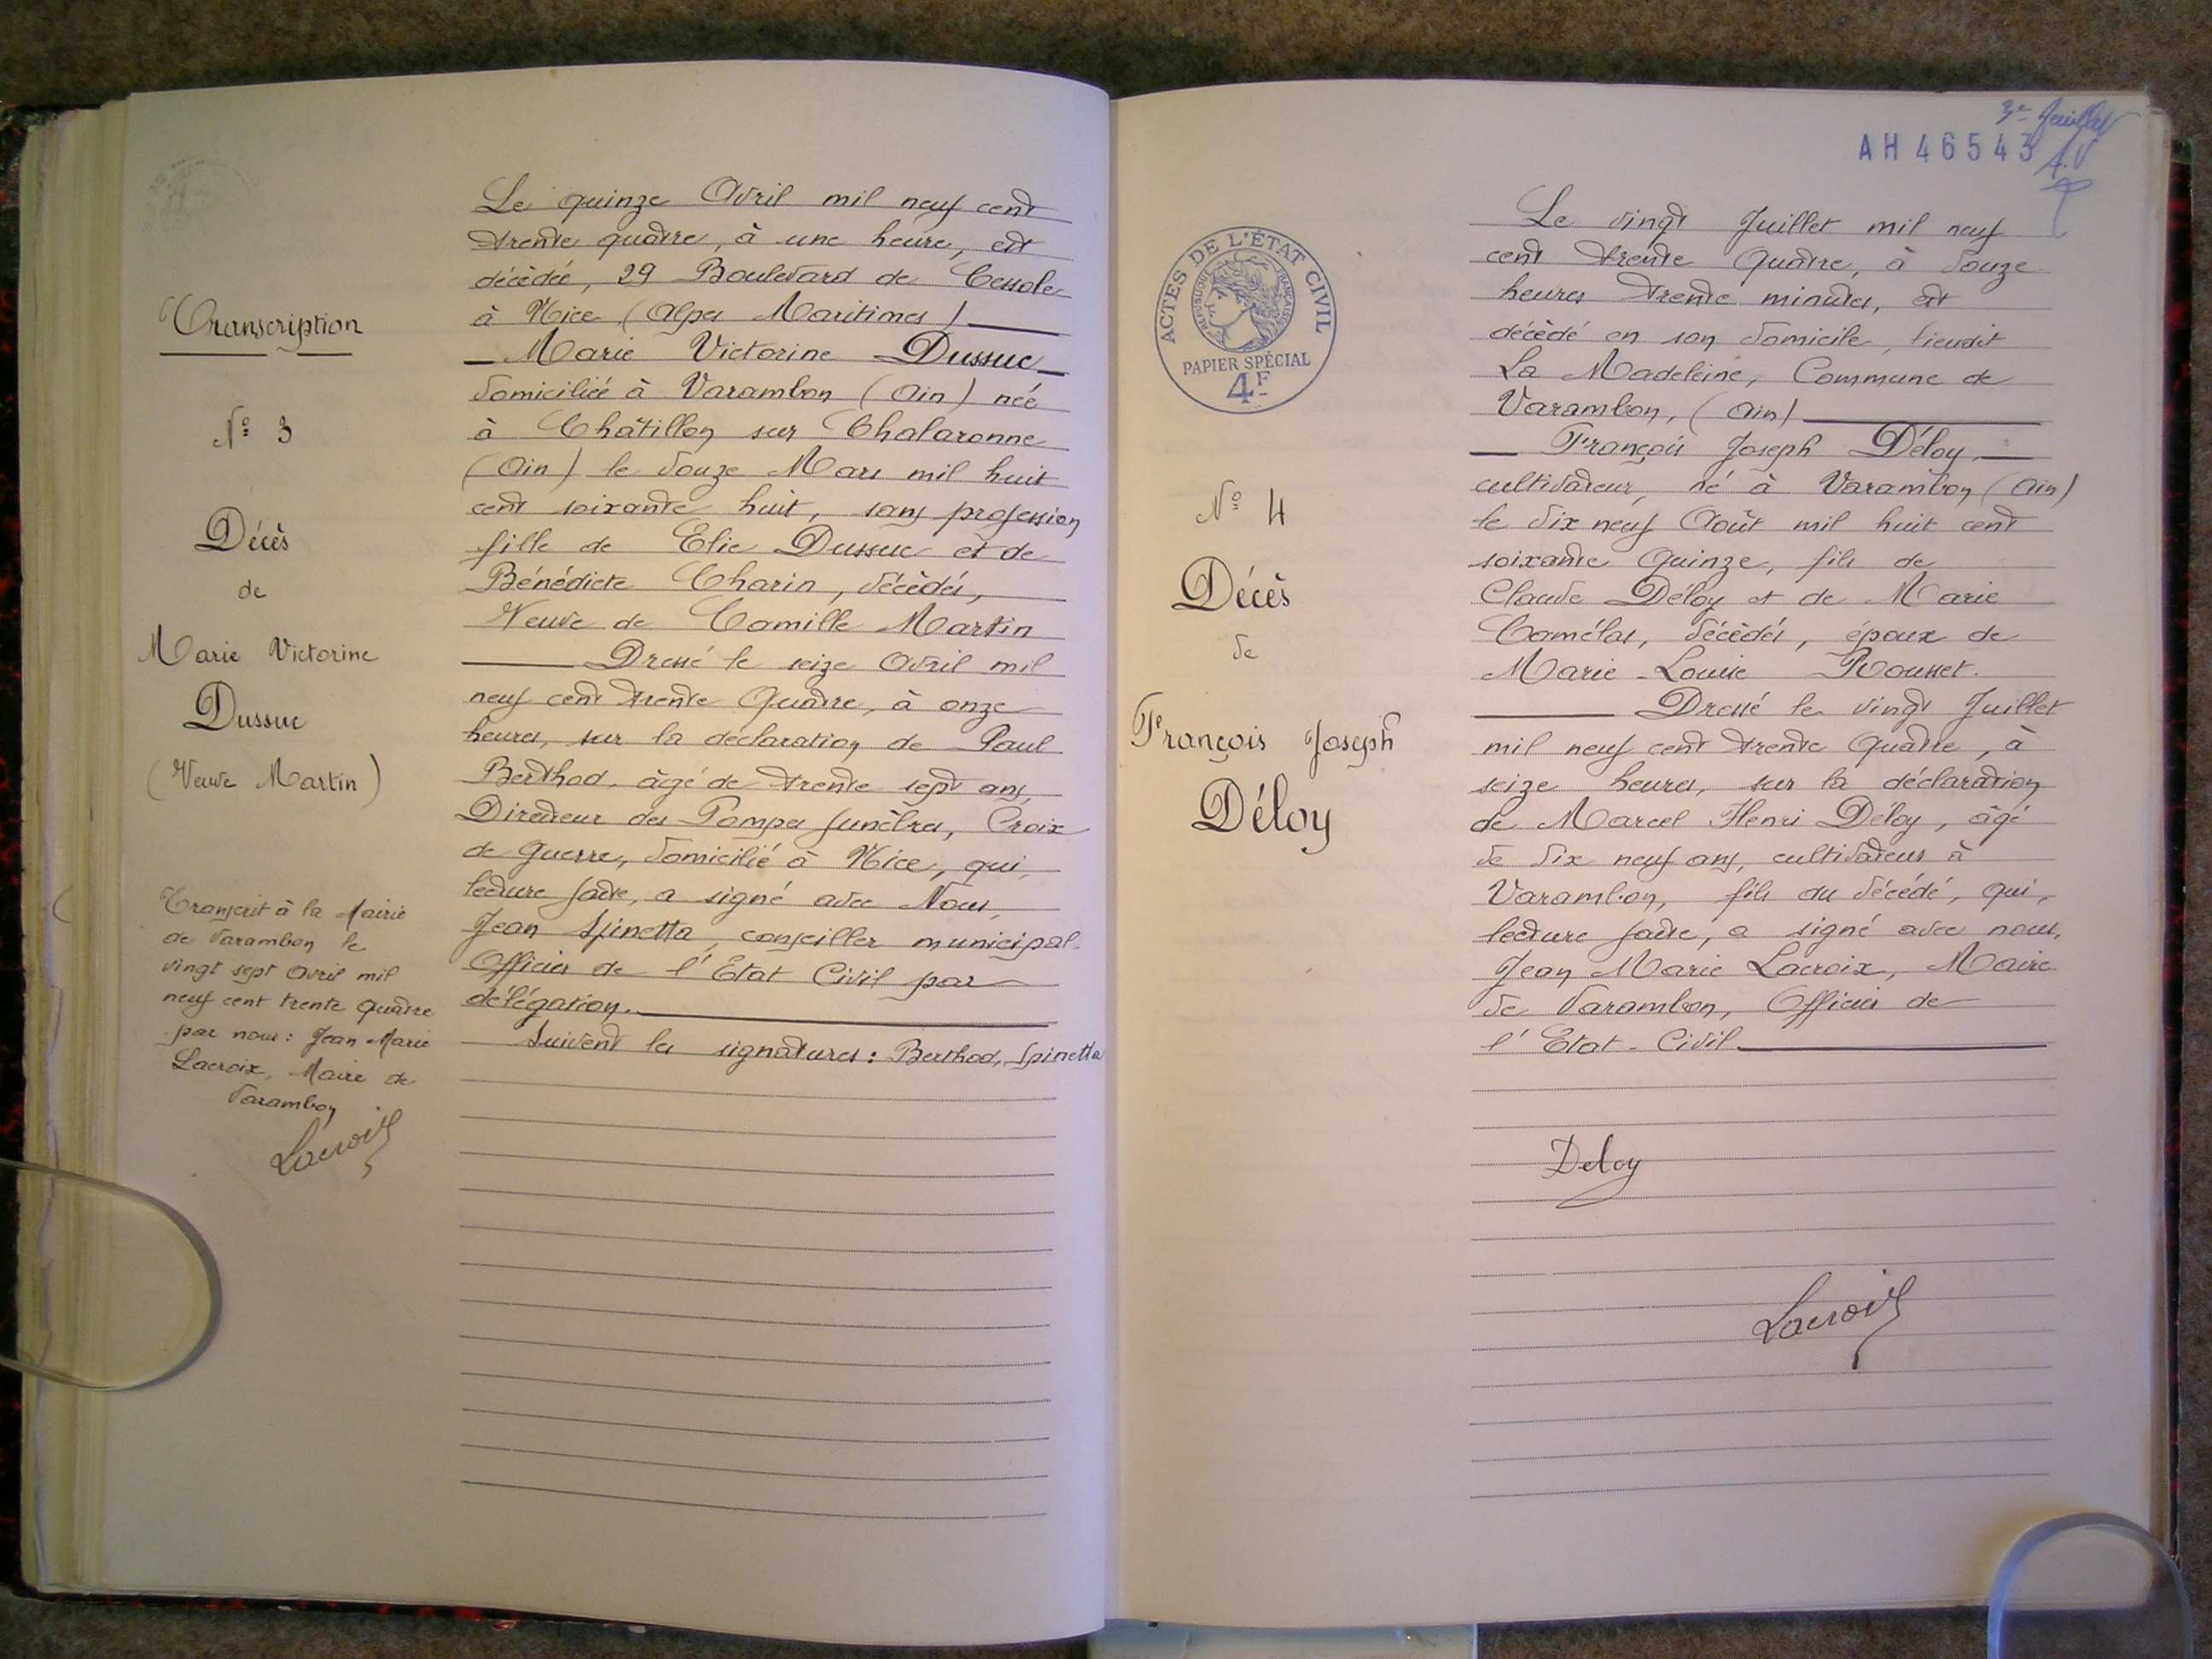 Transcription
N° 3
Décès
de
Marie Victorine
Dussuc
(Veuve Martin)
Transcrit à la Mairie
de Varambon le
vingt sept Avril mil
neuf cent trente quatre
par nous : Jean Marie
Lacroix, Maire de
Varambon
Lacroix
Le quinze Avril mil neuf cent
trente quatre, à une heure, est
décédée, 29 Boulevard de Cessole
à Nice (Alpes Maritimes)
Marie Victorine Dussuc
domiciliée à Varambon (Ain) née
à Châtillon sur Chalaronne
(Ain) le douze Mars mil huit
cent soixante huit, sans profession
fille de Elie Dussuc et de
Bénédicte Charin, décédés,
Veuve de Camille Martin
Dressé le seize Avril mil
neuf cent trente Quatre, à onze
heures, sur la déclaration de Paul
Berthod, âgé de trente sept ans,
Directeur des Pompes funèbres, Croix
de Guerre, domicilié à Nice, qui,
lecture faite, a signé avec Nous,
Jean Spinetta, conseiller municipal.
Officier de l'Etat Civil par
délégation.
Suivent les signatures : Berthod, Spinetta
3e feuillet
AH 46543
A.V
ACTES DE L'ÉTAT CIVIL
RÉPUBLIQUE FRANÇAISE
PAPIER SPÉCIAL
4F
N° 4
Décès
de
François Joseph
Déloy
Le vingt Juillet mil neuf
cent trente Quatre, à douze
heures trente minutes, est
décédé en son domicile, lieudit
La Madeleine, Commune de
Varambon, (Ain)
François Joseph Déloy,
cultivateur, né à Varambon (Ain)
le dix neuf Août mil huit cent
soixante Quinze, fils de
Claude Déloy et de Marie
Comélas, décédés, époux de
Marie-Louise Rousset.
Dressé le vingt Juillet
mil neuf cent trente Quatre, à
seize heures, sur la déclaration
de Marcel Henri Déloy, âgé
de dix neuf ans, cultivateur à
Varambon, fils du décédé, qui,
lecture faite, a signé avec nous,
Jean Marie Lacroix, Maire
de Varambon, Officier de
l'Etat-Civil
Deloy
Lacroix